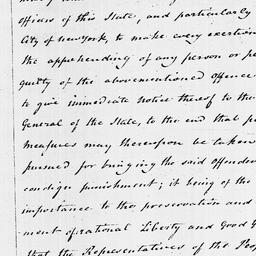 officers of this State, and particularly
City of New York, to make every exertion
the apprehending of any person or pe
guilty of the abovementioned Offence
to give immediate notice thereof to the
General of the State, to the end that p
measures may thereupon be taken
pursued for bringing the said offender
condign punishment; it being of the
importance to the preservation and
ment of rational Liberty and Good G
that the Representatives of the Peop